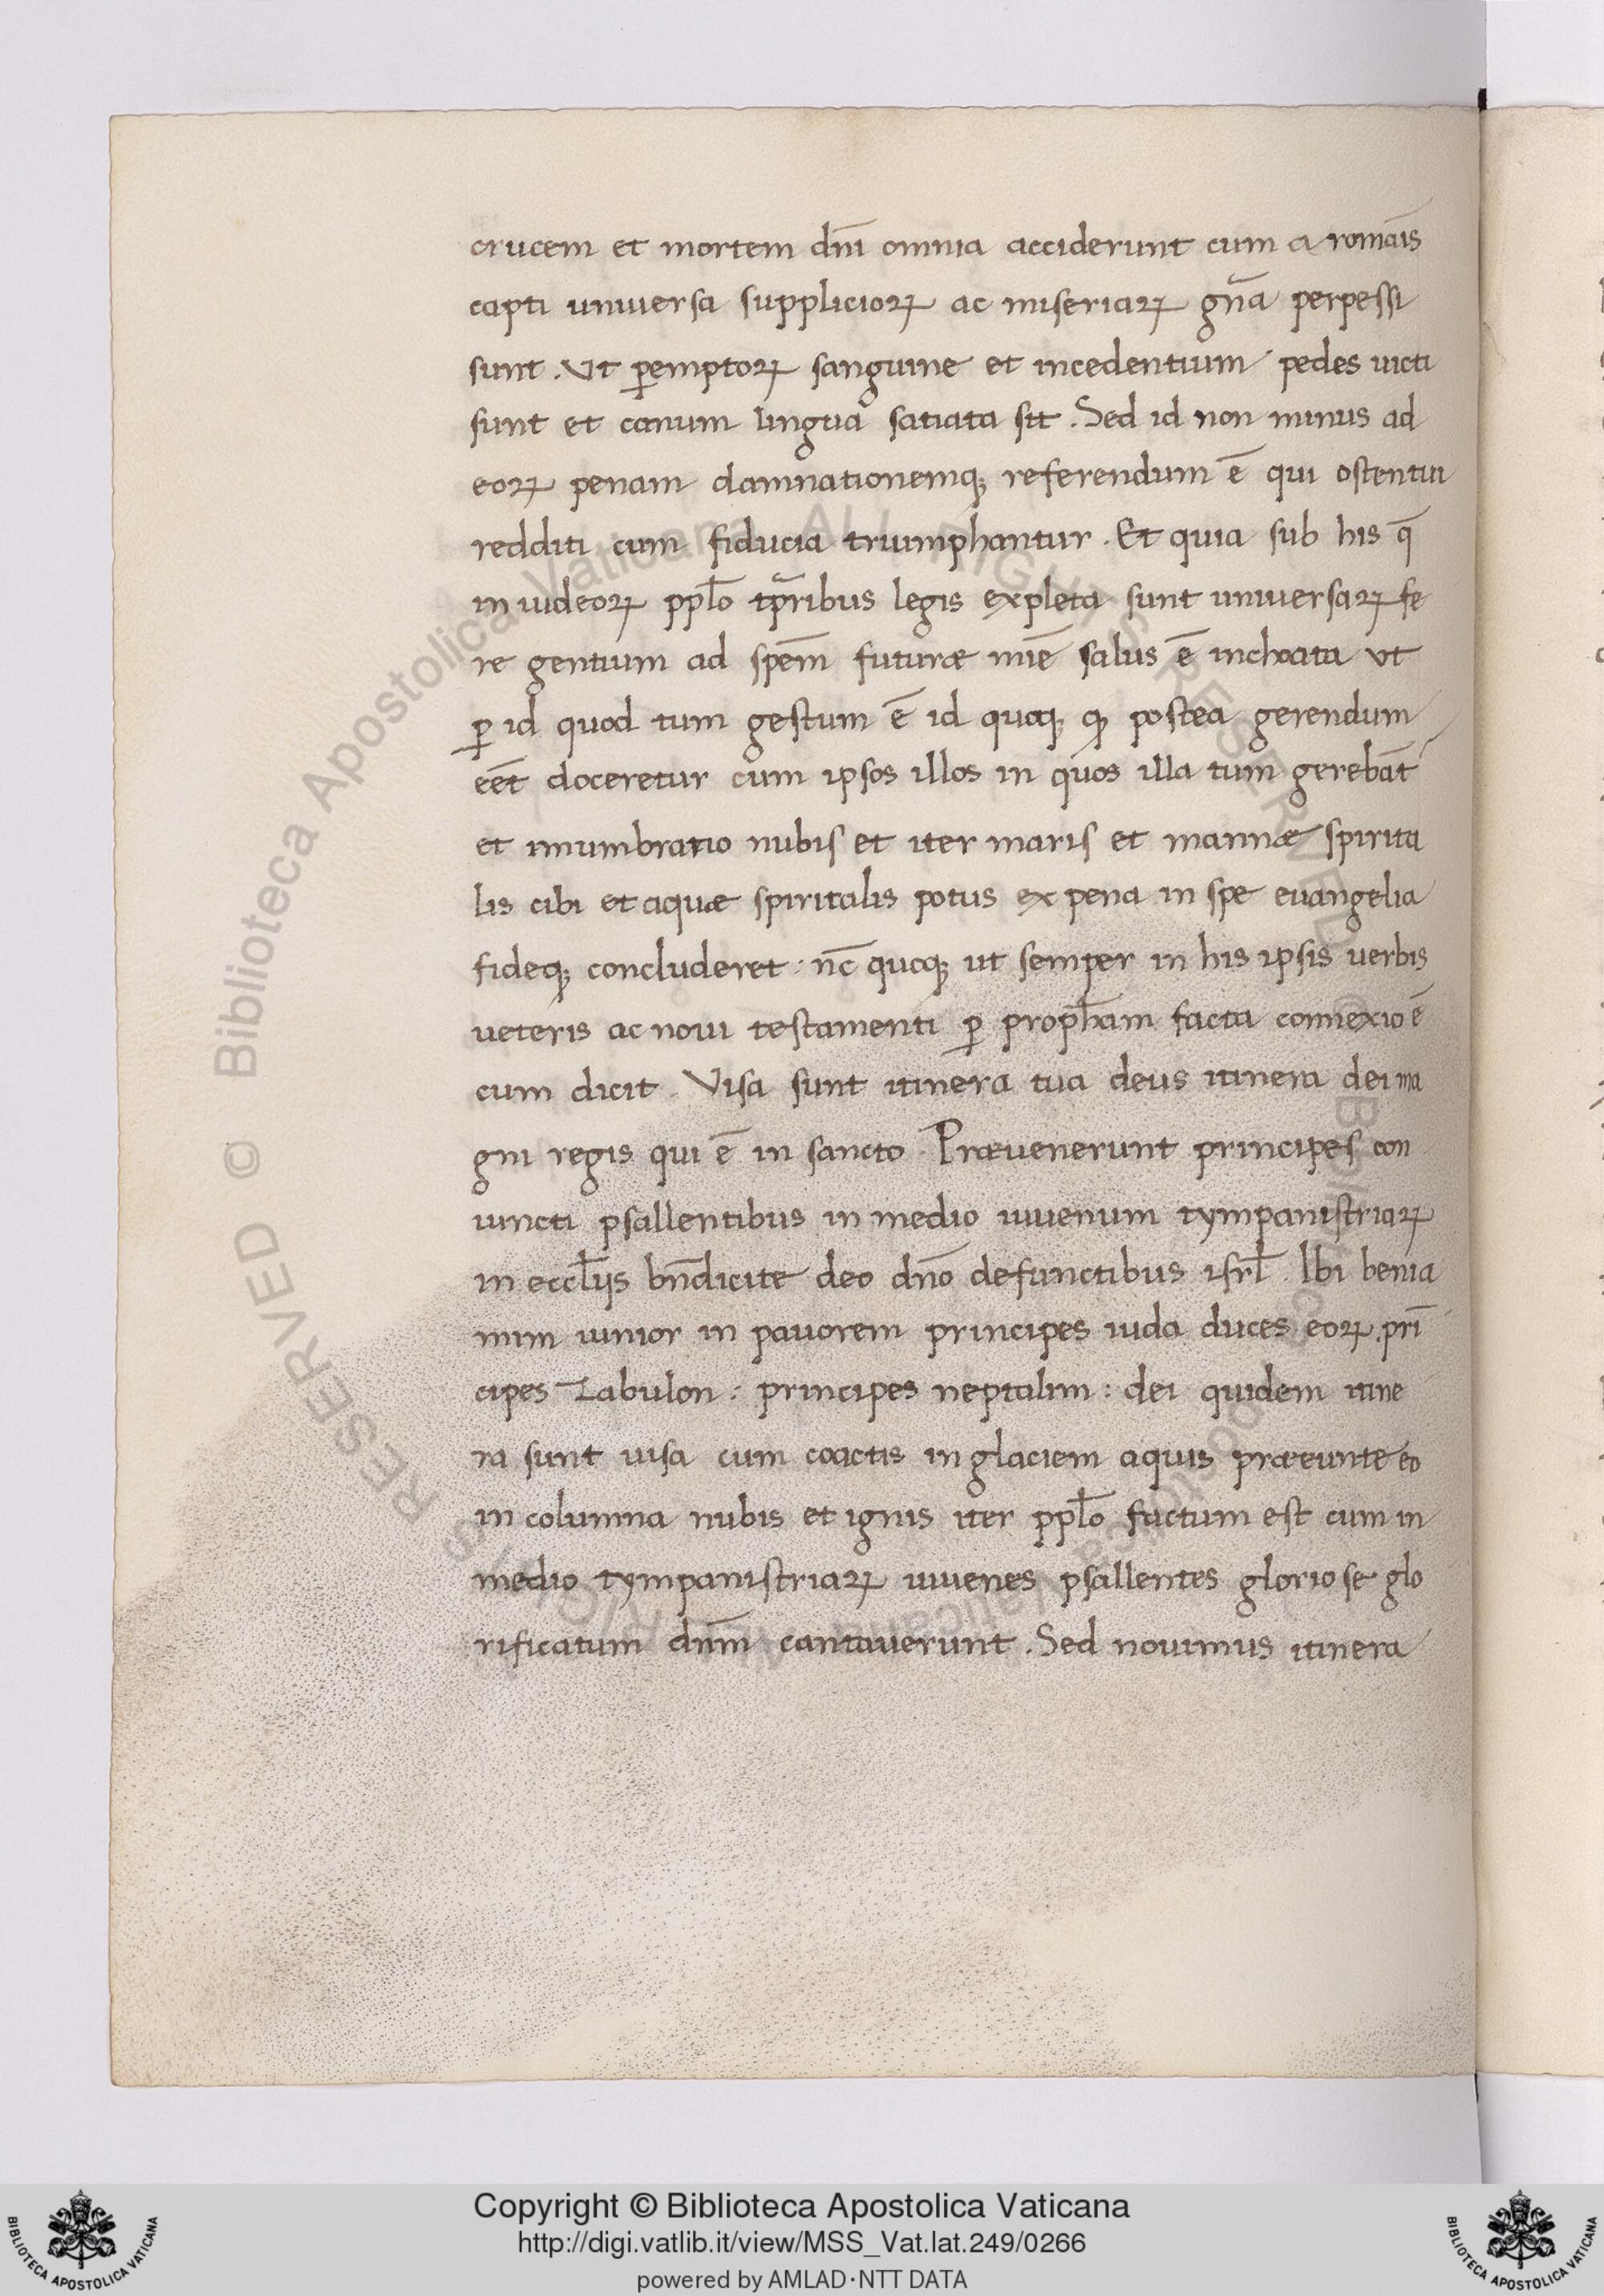 crucem et mortem dn̄i omnia acciderunt cum a romāis
capti uniuersa supplicioꝝ ac miseriaꝝ gn̄a perpessi
sunt. Ut ꝑemptoꝝ sanguine et incedentium pedes uicti
sunt et canum lingua satiata sit. Sed id non minus ad
eoꝝ penam damnationemqꝫ referendum ē qui ostentui
redditi cum fiducia triumphantur. Et quia sub his q̄
in iudeoꝝ pplō tp̄ribus legis expleta sunt uniuersaꝝ fe
re gentium ad spem̄ futuræ uitē salus ē inchoata ut
ꝑ id quod tum gestum ē id quoqꝫ qꝫ postea gerendum
eēt doceretur cum ipsos illos in quos illa tum gerebāt
et inumbratio nubis et iter maris et mannæ spirita
lis cibi et aquæ spiritalis potus ex pena in spe euangelia
fideqꝫ concluderet: nc̄ quoqꝫ ut semper in his ipsis uerbis
ueteris ac noui testamenti ꝑ proph̄am facta connexio ē
cum dicit. Visa sunt itinera tua deus itinera dei ma
gni regis qui ē in sancto. Præuenerunt principes con
iuncti psallentibus in medio iuuenum tympanistriaꝝ
in eccl̄iis bn̄dicite deo dn̄o de functibus isrl̄. Ibi benia
mim iunior in pauorem principes iuda duces eoꝝ. prī
cipes Zabulon: principes neptalim: dei quidem itine
ra sunt uisa cum coactis in glaciem aquis præeunte eo
in columna nubis et ignis iter pplō factum est cum in
medio tympanistriaꝝ iuuenes psallentes gloriose glo
rificatum dnm̄ cantauerunt. Sed nouimus itinera
Copyright © Biblioteca Apostolica Vaticana
http://digi.vatlib.it/view/MSS_Vat.lat.249/0266
powered by AMLAD·NTT DATA
BIBLIOTECA APOSTOLICA VATICANA
BIBLIOTECA APOSTOLICA VATICANA